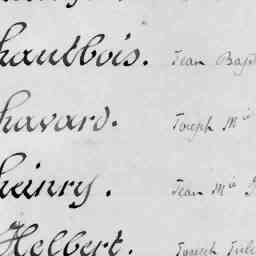 hautbois. Jean Bapt
havard. Joseph Mie
hainry. Jean Mie J
Helbert. Joseph Juli